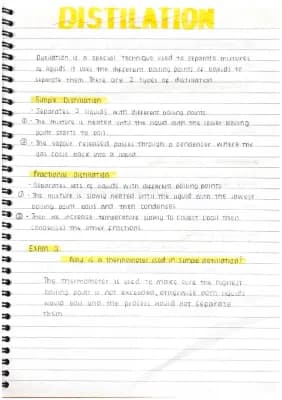 DISTILATION
Distilation is a special technique used to separate mixtures
of liquids it uses the different boiling points of liquids to
separate them. There are 2 types of distilation
Simple Distilation
- Separates 2 liquids with different boiling points.
① - The mixture is heated until the liquid with the lower boiling
point starts to boil.
② - The vapour released passes through a condenser where the
gas cools back into a liquid.
Fractional Distilation
- Separates lots of liquids with different boiling points
① - The mixture is slowly heated until the liquid with the lowest
boiling point boils and then condenses.
② - Then we increase temperature slowly to collect (boil then
condense) the other fractions.
Exam Q
Why is a thermometer used in simple distilation?
The thermometer is used to make sure the highest
boiling point is not exceeded, otherwise both liquids
would boil and the process would not separate
them